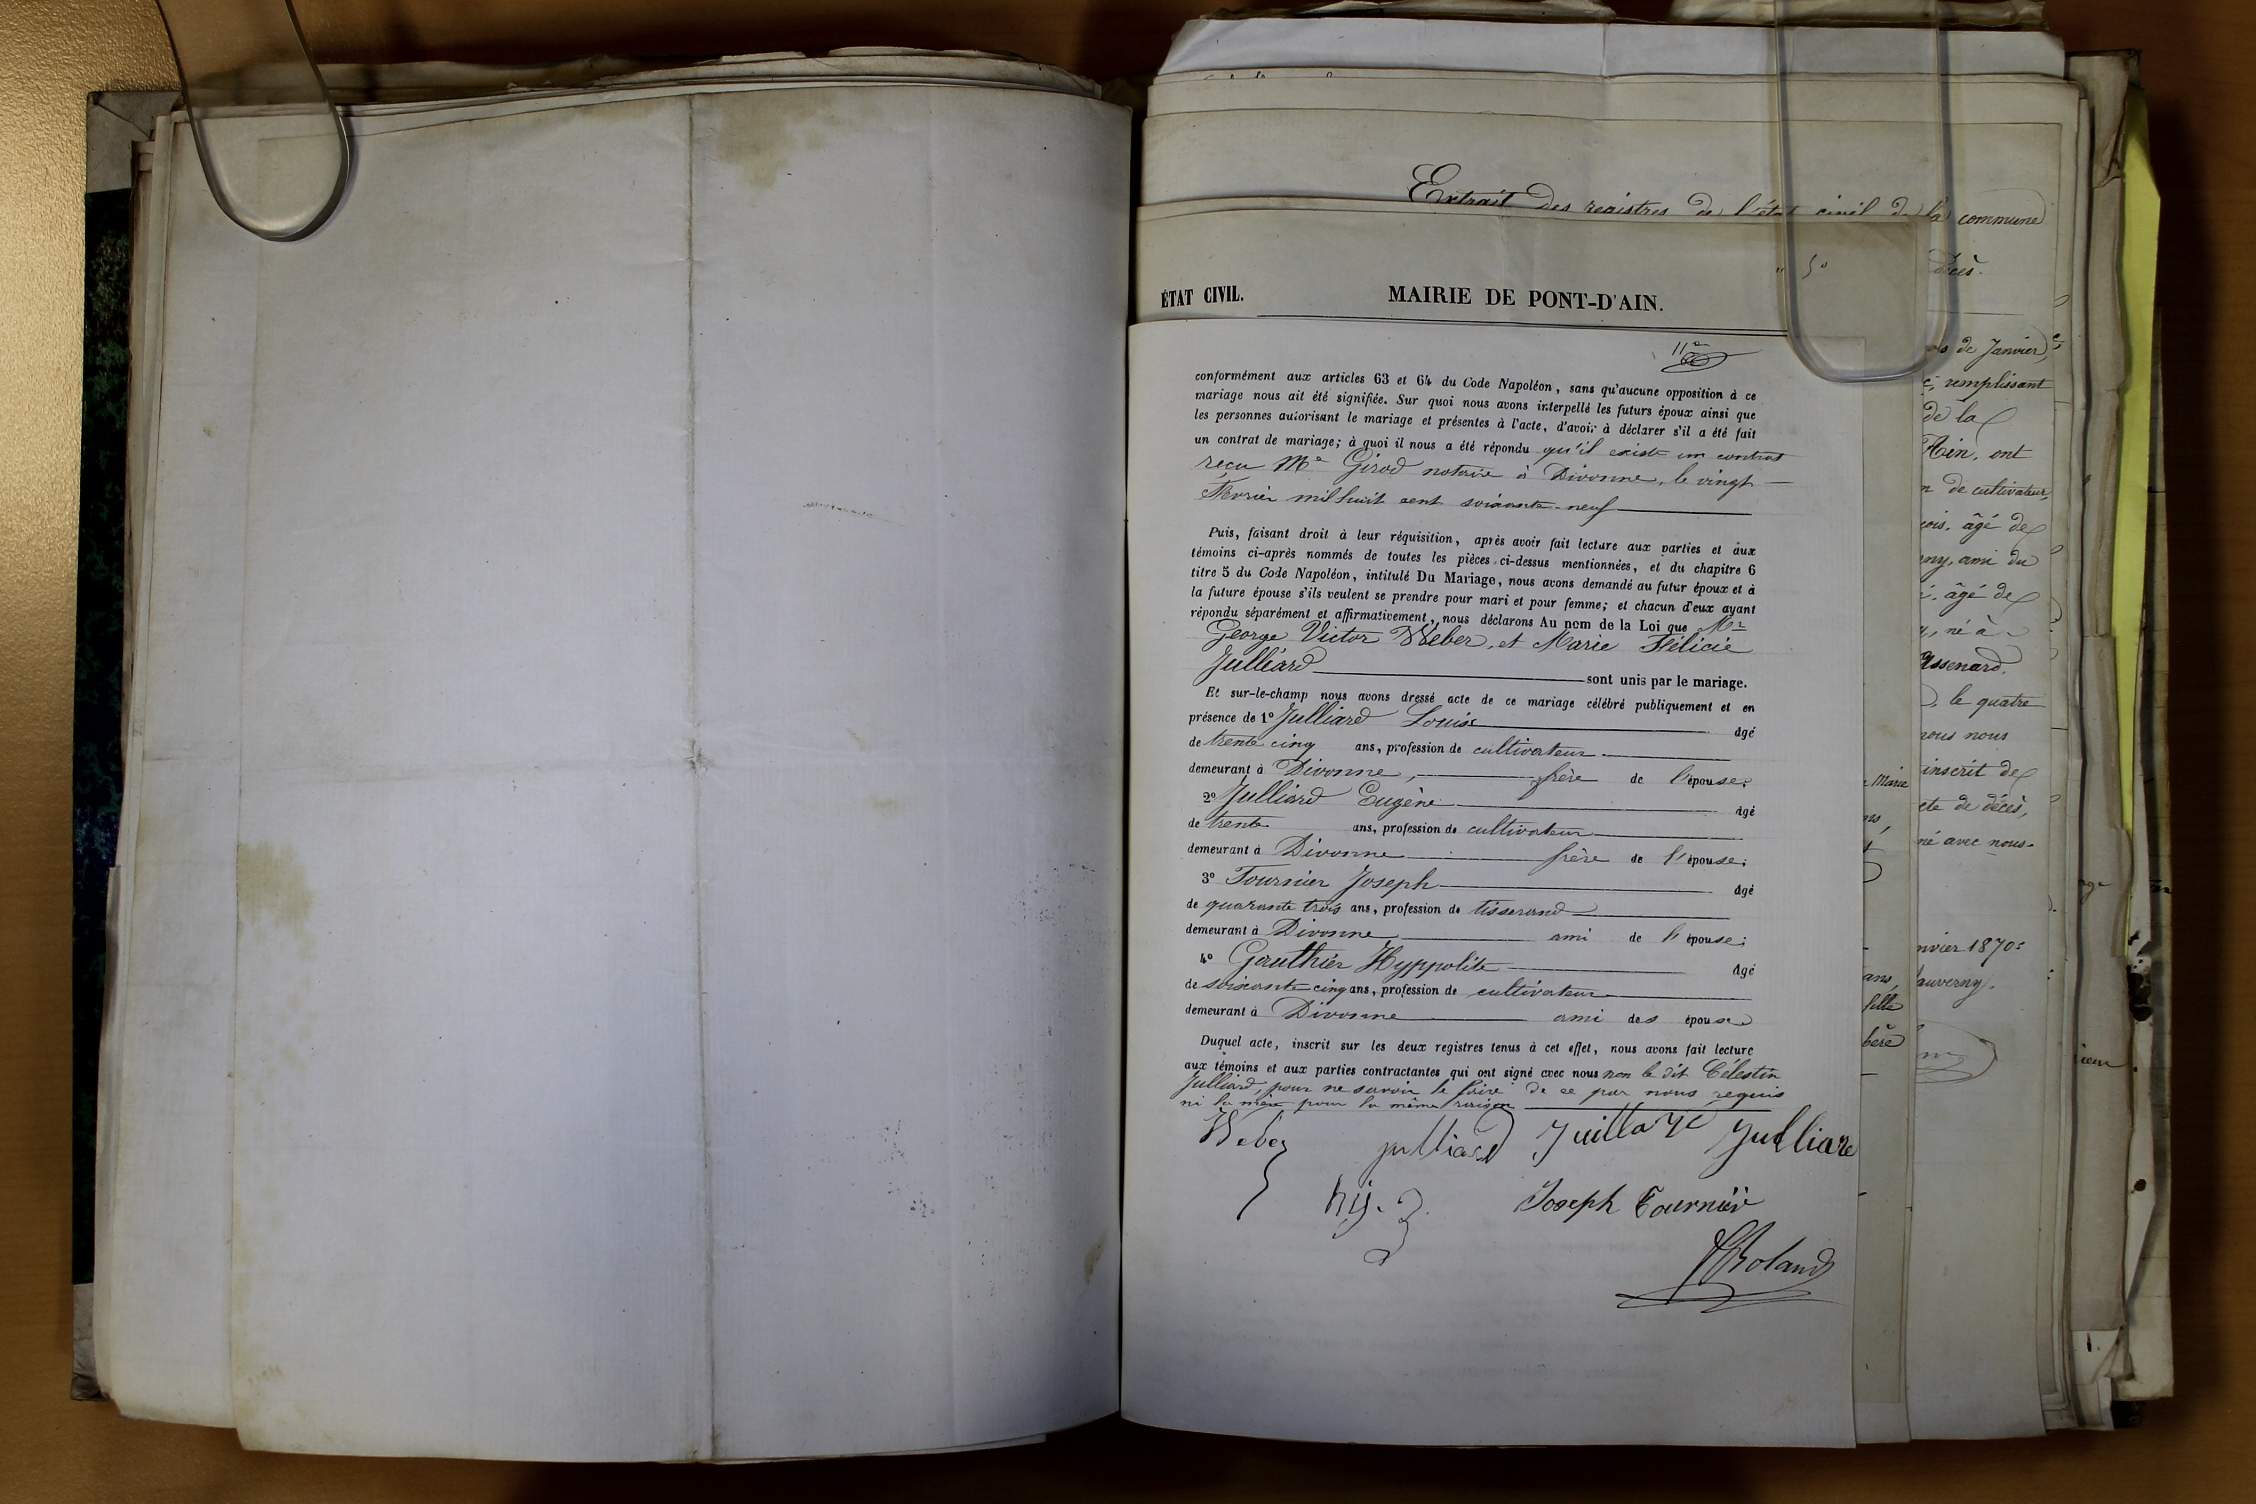 Extrait des registres de l'état civil de la commune
décès.
ÉTAT CIVIL. MAIRIE DE PONT-D'AIN.
11e
conformément aux articles 63 et 64 du Code Napoléon, sans qu'aucune opposition à ce
mariage nous ait été signifiée. Sur quoi nous avons interpellé les futurs époux ainsi que
les personnes autorisant le mariage et présentes à l'acte, d'avoir à déclarer s'il a été fait
un contrat de mariage; à quoi il nous a été répondu qu'il existe un contrat
reçu Me Girod notaire à Divonne, le vingt
février mil huit cent soixante-neuf
Puis, faisant droit à leur réquisition, après avoir fait lecture aux parties et aux
témoins ci-après nommés de toutes les pièces ci-dessus mentionnées, et du chapitre 6
titre 5 du Code Napoléon, intitulé Du Mariage, nous avons demandé au futur époux et à
la future épouse s'ils veulent se prendre pour mari et pour femme; et chacun d'eux ayant
répondu séparément et affirmativement, nous déclarons Au nom de la Loi que Mr
George Victor Weber, et Marie Félicie
Julliard sont unis par le mariage.
Et sur-le-champ nous avons dressé acte de ce mariage célébré publiquement et en
présence de 1º Julliard Louis âgé
de trente cinq ans, profession de cultivateur
demeurant à Divonne, frère de l'épouse;
2º Julliard Eugène âgé
de trente ans, profession de cultivateur
demeurant à Divonne frère de l'épouse;
3º Fournier Joseph âgé
de quarante trois ans, profession de tisserand
demeurant à Divonne ami de l'épouse;
4º Gauthier Hyppolite âgé
de soixante cinq ans, profession de cultivateur
demeurant à Divonne ami des épouse
Duquel acte, inscrit sur les deux registres tenus à cet effet, nous avons fait lecture
aux témoins et aux parties contractantes qui ont signé avec nous non le dit Célestin
Julliard, pour ne savoir le faire de ce par nous requis
ni la mère pour la même raison
Weber julliard Juillard Julliare
hij. g.
Joseph Fournier
Roland
de Janvier,
remplissant
de la
Ain, ont
de cultivateur,
âgé de
ami du
âgé de
né à
le quatre
nous nous
inscrit de
Marie
acte de décès,
avec nous.
1870
ans,
fille